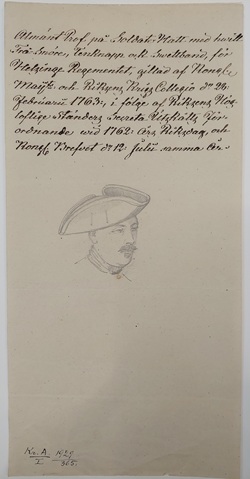 Allmänt Prof. på Soldat-Hatt med hwitt
Trä-Snören, Tennknapp och Swettband, för
Helsinge Regementet, giltad af Kongl.
Maij:tz och Riksens Krigs Collegio d. 26
Februarii 1763, i följe af Riksens Hög-
loflige Ständers Secreta Utskotts För-
ordnande wid 1762 års Riksdag, och
Kongl. Brefvet d. 12 Julii samma år.
Kr. A. 1929
I 365.